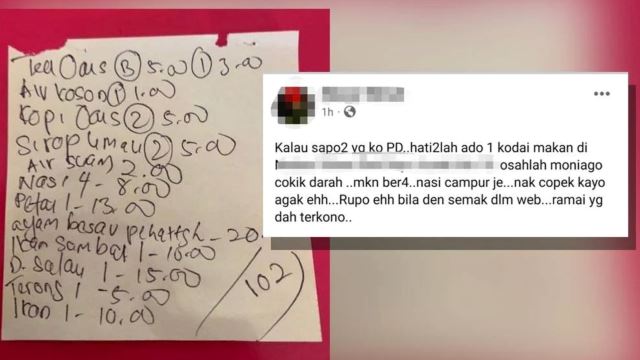 Tea Oais (3) 5.00 (1) 3.00
Air Kosong (1) 1.00
Kopi Oais (2) 5.00
Sirop Limau (2) 5.00
Air Suam 2.00
Nasi 4 - 8.00
Petai 1 - 13.00
ayam besar - 20
Ikan Sambal 1 - 10.00
D. Salai 1 - 15.00
Terong 1 - 5.00
Ikan 1 - 10.00
102
1h
Kalau sapo2 yg ko PD..hati2lah ado 1 kodai makan di
osahlah moniago
cokik darah ..mkn ber4..nasi campur je...nak copek kayo
agak ehh...Rupo ehh bila den semak dlm web...ramai yg
dah terkono..